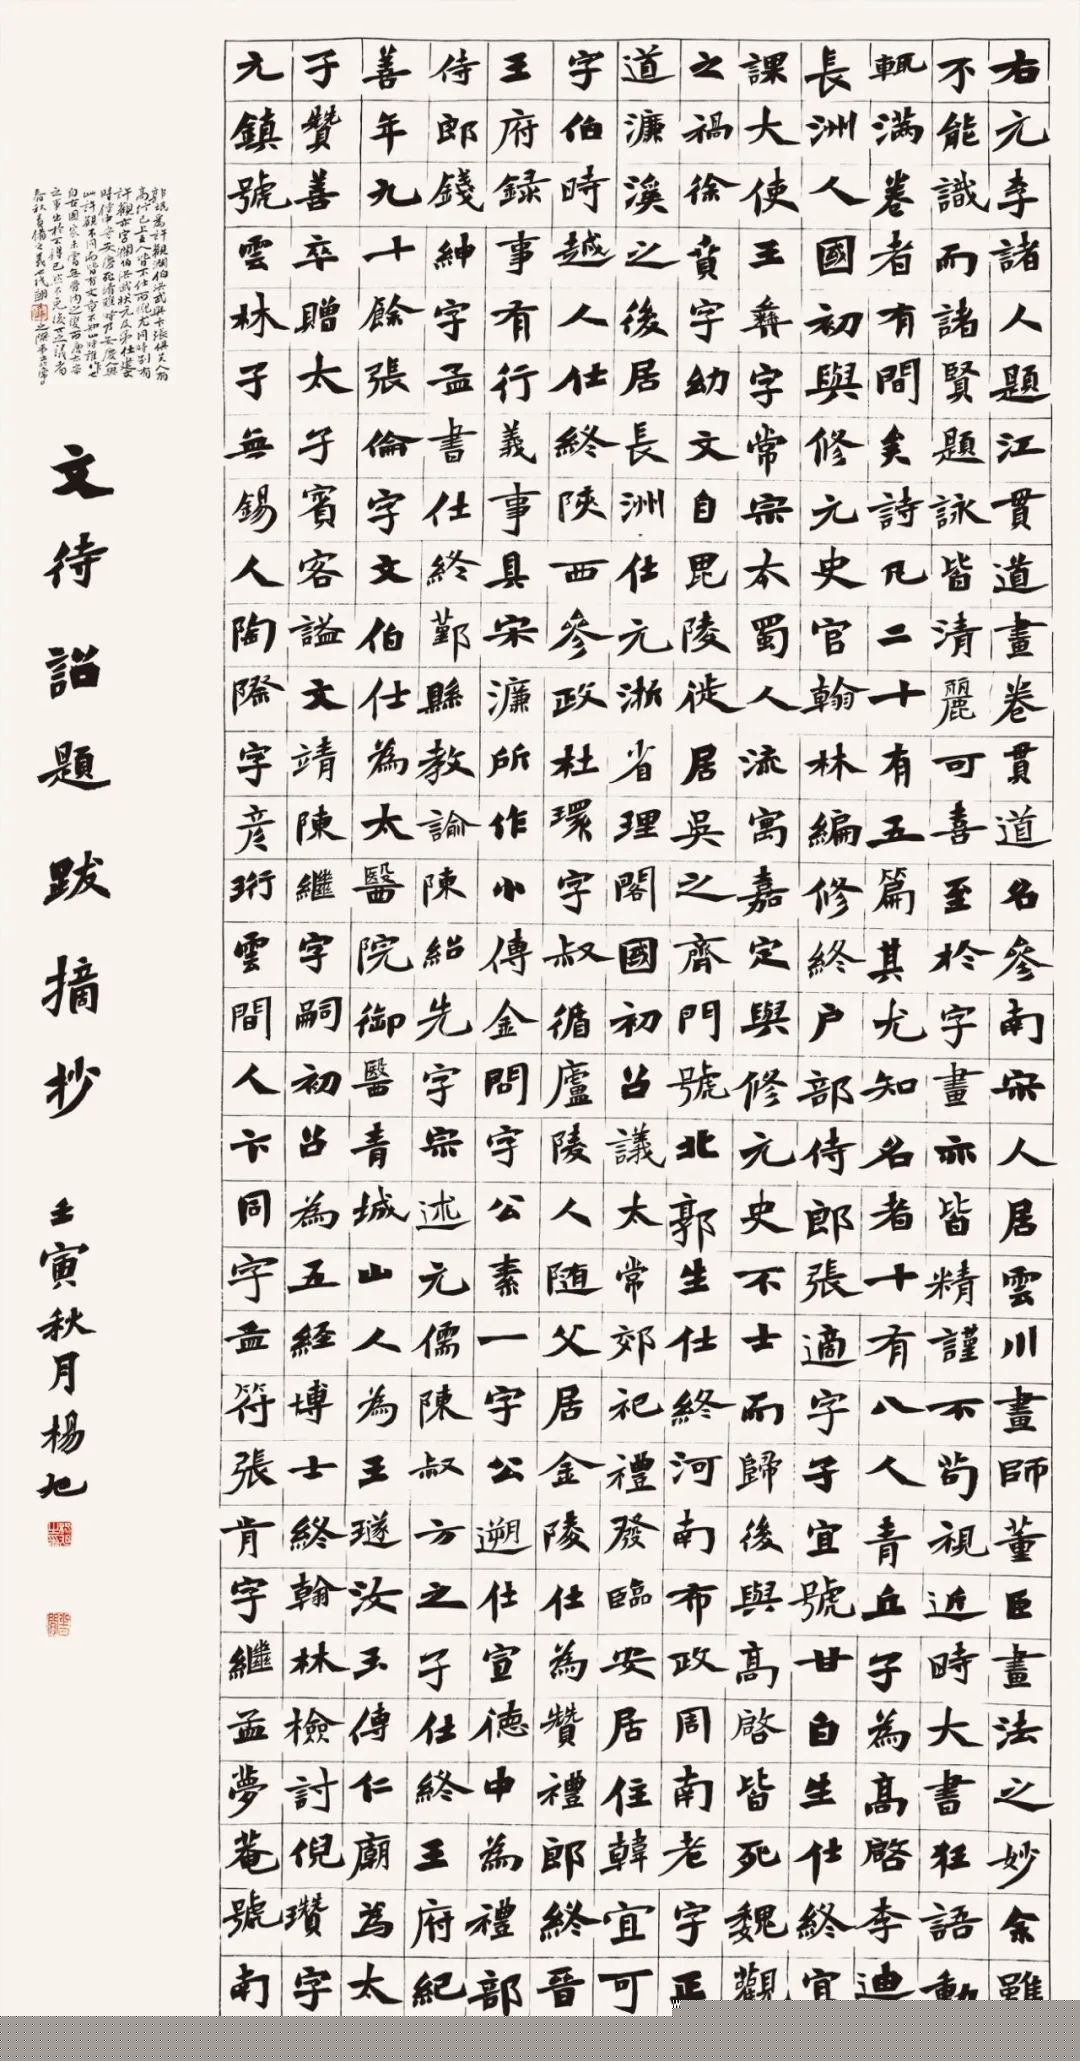 右元李諸人題江貫道畫卷貫道名參南宋人居雲川畫師董巨畫法之妙余雖
不能識而諸賢題詠皆清麗可喜至於字畫亦皆精謹不茍視近時大書狂語動
輒滿卷者有間矣詩凡二十有五篇其尤知名者十有八人青丘子為高啓李迪
長洲人國初與修元史官翰林編修終户部侍郎張適字子宜號甘白生仕終宜
課大使王彝字常宗本蜀人流寓嘉定與修元史不士而歸後與高啓皆死魏觀
之禍徐賁字幼文自毘陵徙居吳之齊門號北郭生仕終河南布政周南老字正
道濂溪之後居長洲仕元浙省理閣國初召議太常郊祀禮發臨安居住韓宜可
字伯時越人仕終陝西參政杜環字叔循廬陵人随父居金陵仕為贊禮郎終晋
王府録事有行義事具宋濂所作小傳金問字公素一字公遡仕宣德中為禮部
侍郎錢紳字孟書仕終鄞縣教諭陳紹先字宗述元儒陳叔方之子仕終王府紀
善年九十餘張倫字文伯仕為太醫院御醫青城山人為王璲汝玉傳仁廟為太
子贊善卒贈太子賓客諡文靖陳繼字嗣初召為五經博士終翰林檢討倪瓚字
元鎮號雲林子無錫人陶際字彦珩雲間人卞同字孟符張肯字繼孟夢菴號南
文待詔題跋摘抄
壬寅秋月楊旭